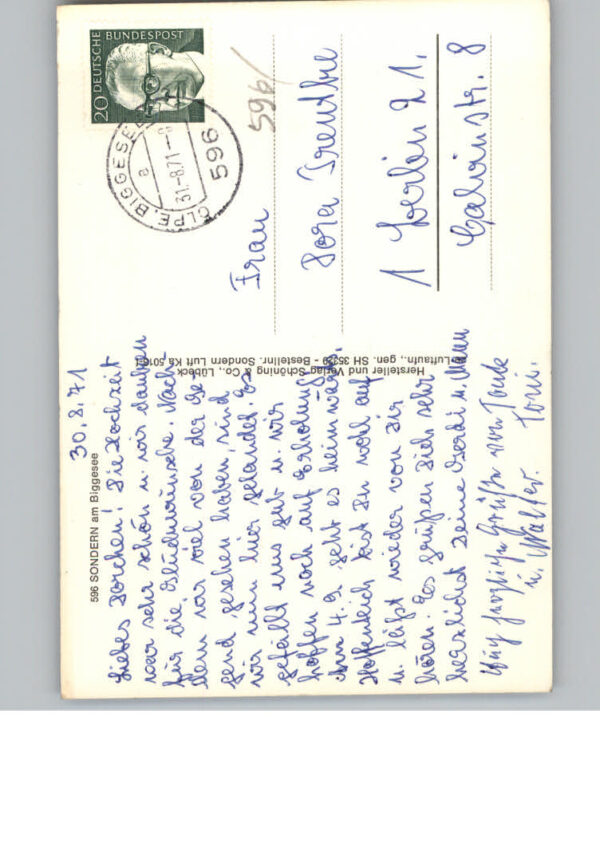 596 SONDERN am Biggesee
30.8.71
Liebes Dorchen! Die Hochzeit
war sehr schön u. wir danken
für die Glückwünsche. Nach-
dem wir viel von der Ge-
gend gesehen haben, sind
wir nun hier gelandet. Es
gefällt uns gut u. wir
hoffen noch auf Erholung.
Am 4.9. geht es heimwärts.
Hoffentlich bist Du wohl auf
u. läßt wieder von Dir
hören. Es grüßen Dich sehr
herzlichst Deine Gerdi u.
herzliche Grüße von Tante Toni.
u. Walter.
Hersteller und Verlag Schöning & Co., Lübeck
Luftaufn., gen. SH - Bestellnr. Sondern Luft Ka
DEUTSCHE BUNDESPOST
20
OLPE, BIGGESEE
a
31.-8.71
596
596/
Frau
Dora
1 Berlin 21.
Calvinstr. 8